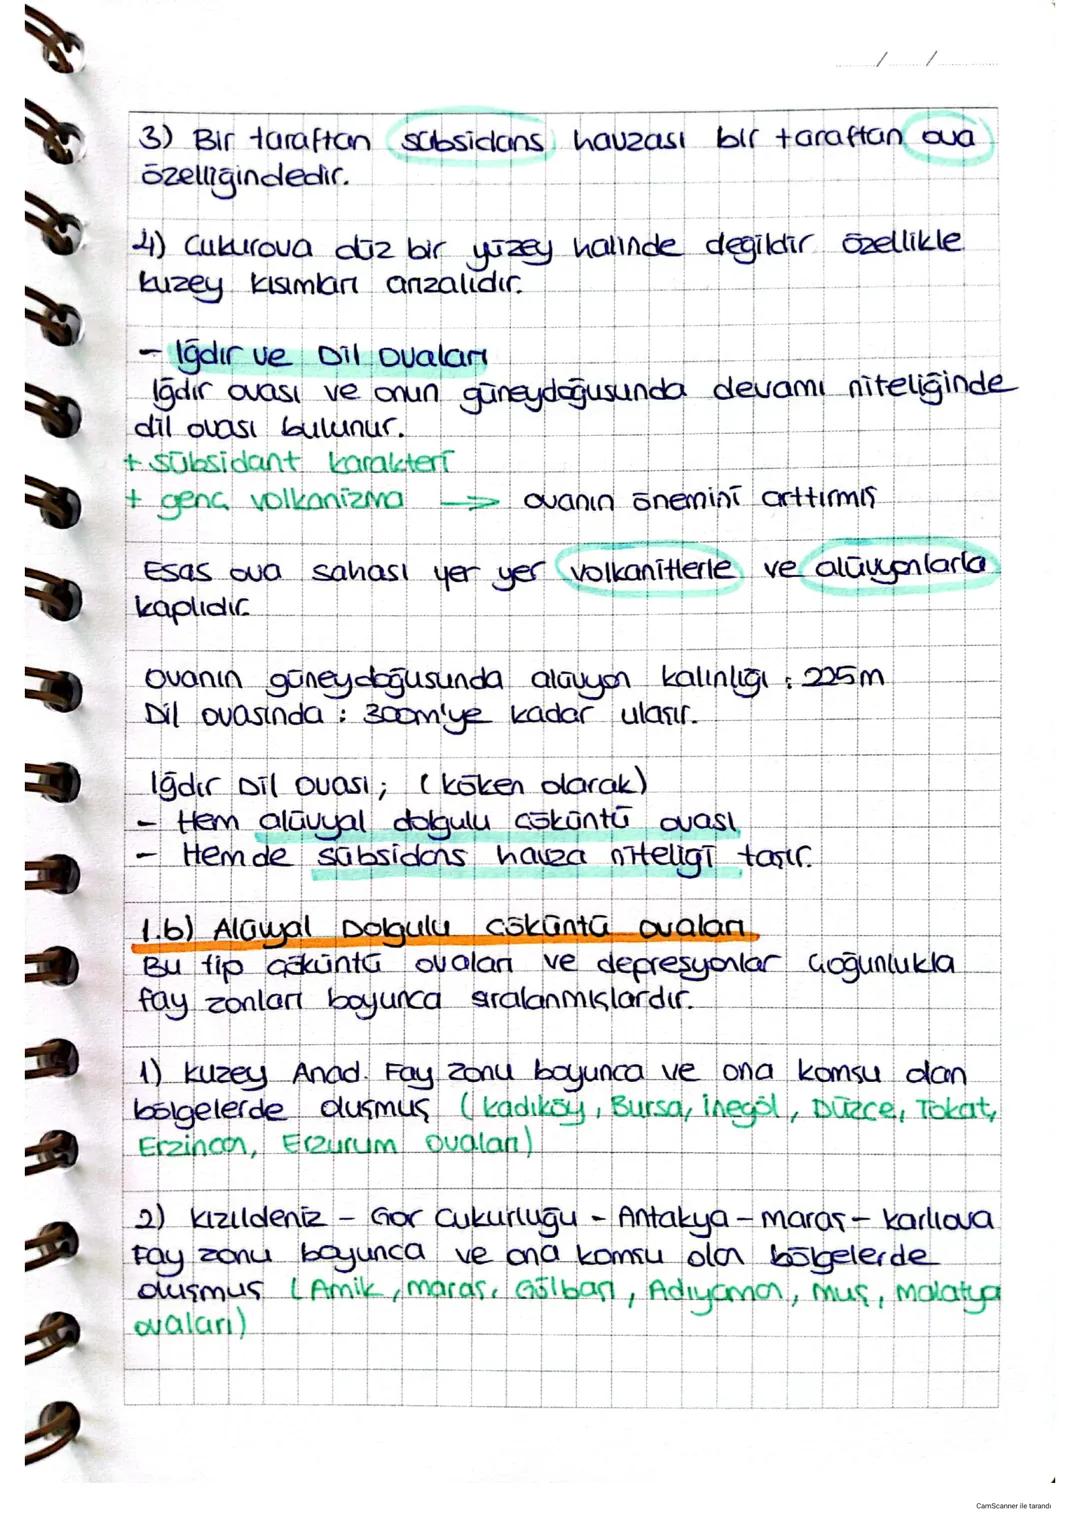 / /
3) Bir taraftan sübsidans havzası bir taraftan ova
özelliğindedir.
4) Çukurova düz bir yüzey halinde değildir özellikle
kuzey kısımları arızalıdır.
- Iğdır ve Dil Ovaları
Iğdır ovası ve onun güneydoğusunda devamı niteliğinde
dil ovası bulunur.
+ sübsidant karakteri
+ genç volkanizma → ovanın önemini arttırmış
Esas ova sahası yer yer volkanitlerle ve alüvyonlarla
kaplıdır.
Ovanın güneydoğusunda alüvyon kalınlığı : 225m
Dil ovasında : 300m'ye kadar ulaşır.
Iğdır Dil Ovası; (köken olarak)
- Hem alüvyal dolgulu çöküntü ovası
- Hemde sübsidans havza niteliği taşır.
1.b) Alüvyal Dolgulu Çöküntü Ovaları
Bu tip çöküntü ovaları ve depresyonlar çoğunlukla
fay zonları boyunca sıralanmışlardır.
1) Kuzey Anad. Fay zonu boyunca ve ona komşu olan
bölgelerde oluşmuş (Kadıköy, Bursa, İnegöl, Düzce, Tokat,
Erzincan, Erzurum ovaları)
2) Kızıldeniz - Gor Çukurluğu - Antakya - Maraş - Karlıova
Fay zonu boyunca ve ona komşu olan bölgelerde
oluşmuş (Amik, Maraş, Gölbaşı, Adıyaman, Muş, Malatya
ovaları)
CamScanner ile tarandı